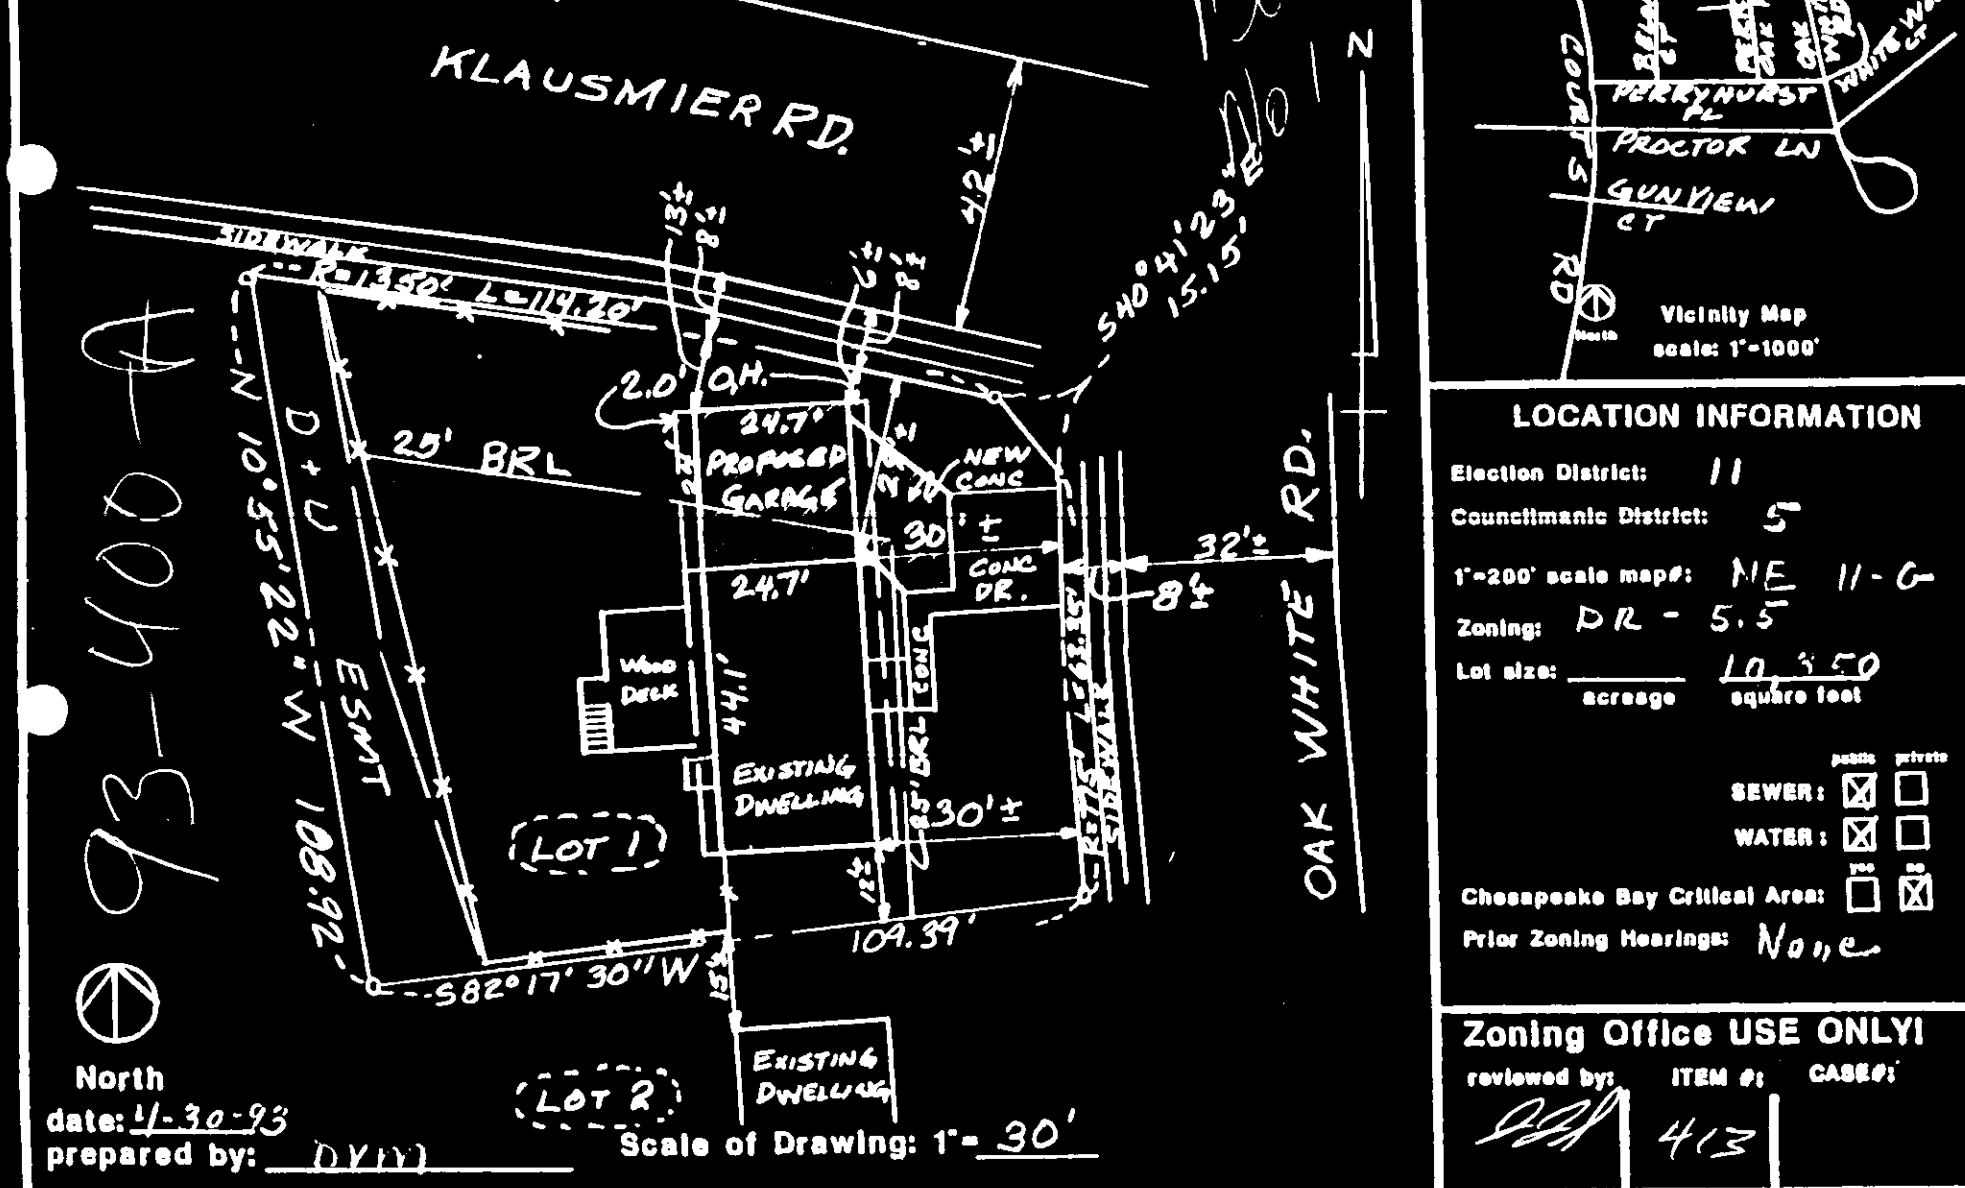 KLAUSMIER RD.
N
42'±
S40°41'23"E
15.15'
13'±
8'±
6'±
8'±
SIDEWALK
R=1350' L=114.20'
2.0' O.H.
24.7'
PROPOSED
GARAGE
25' BRL
NEW
CONC
30'±
CONC
DR.
24.7'
32'±
8'±
N 10°55'22" W 108.92
D+U ESMT
WOOD
DECK
44.1'
CONC
EXISTING
DWELLING
25' BRL
30'±
R=775' L=63.35'
SIDEWALK
OAK WHITE RD.
LOT 1
12'±
109.39'
S82°17'30"W
15'±
EXISTING
DWELLING
LOT 2
93-400-A
North
date: 4-30-93
prepared by:
Scale of Drawing: 1"= 30'
COURTS RD
PERRYHURST
PL
PROCTOR LN
GUNVIEW
CT
WHITE
CT
OAK
North
Vicinity Map
scale: 1"=1000'
LOCATION INFORMATION
Election District: 11
Councilmanic District: 5
1"=200' scale map#: NE 11-G
Zoning: DR-5.5
Lot size: 10,350
acreage square feet
public private
SEWER:
WATER:
yes no
Chesapeake Bay Critical Area:
Prior Zoning Hearings: None
Zoning Office USE ONLY!
reviewed by: ITEM #: CASE#:
413